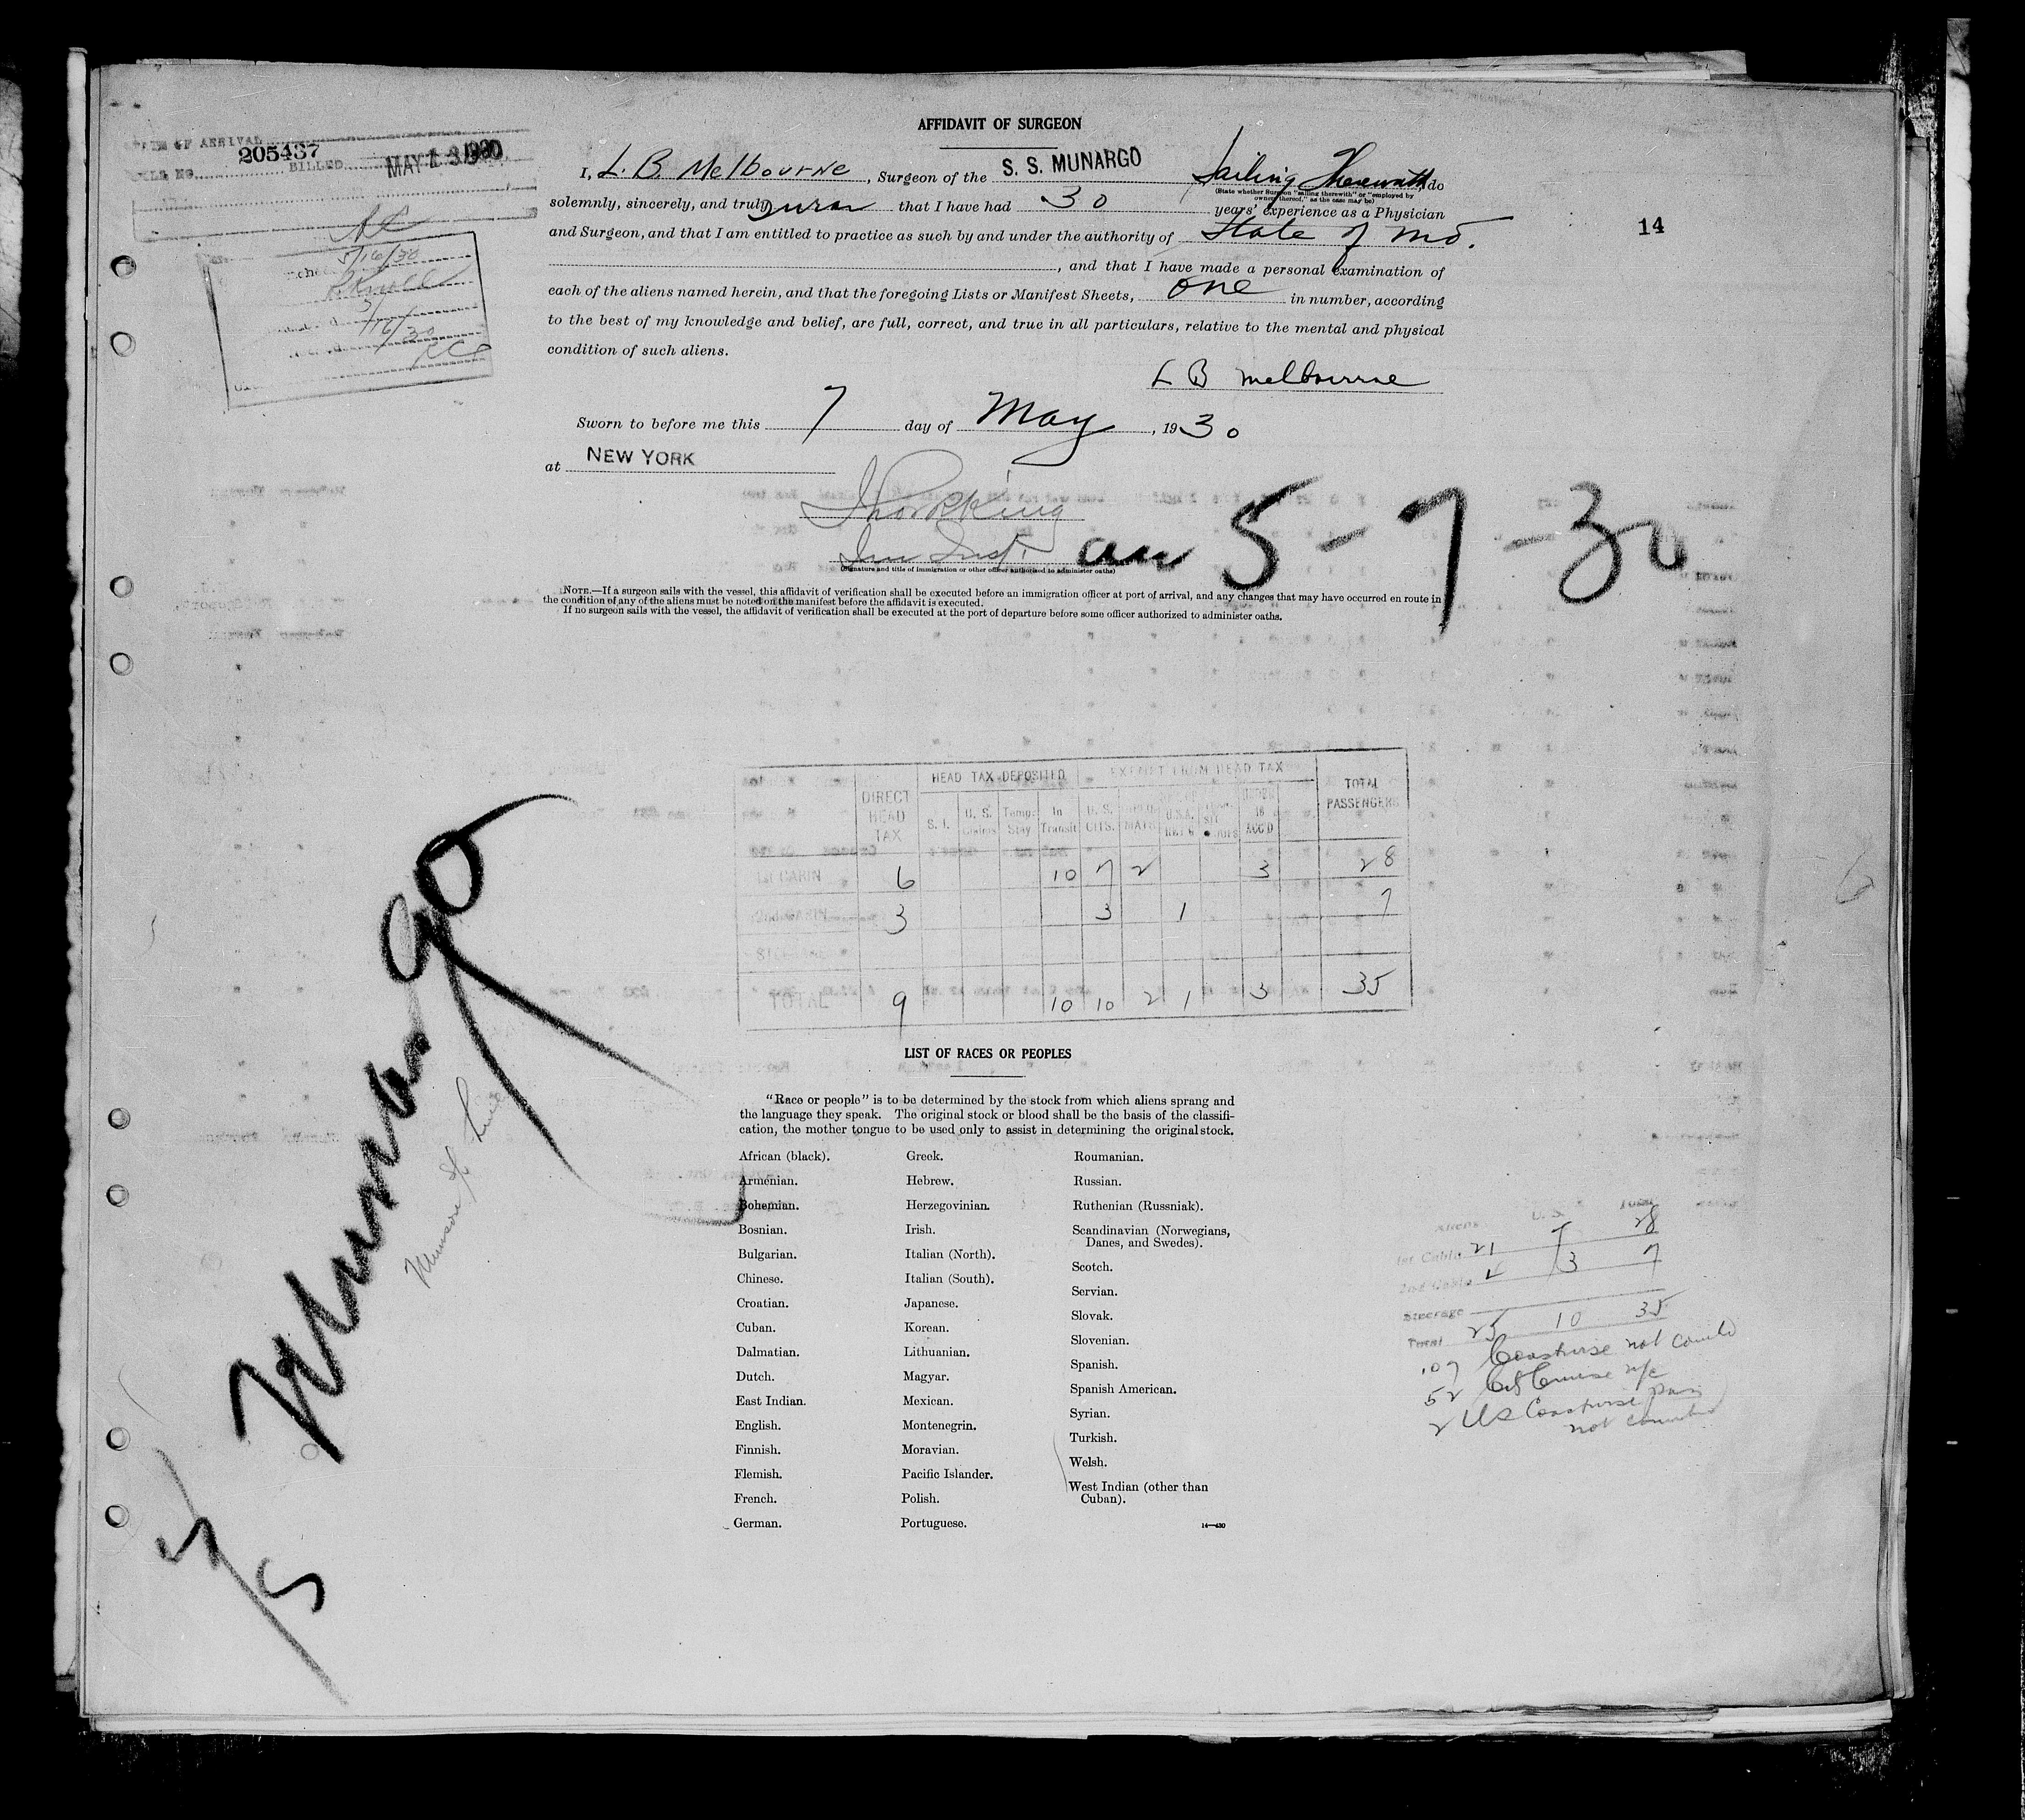 AFFIDAVIT OF SURGEON
OF ARRIVAL
205437 BILLED MAY 13 1930
I, L. B. Melbourne, Surgeon of the S. S. MUNARGO Sailing Therewith do
(State whether Surgeon "sailing therewith" or "employed by
owners thereof," as the case may be)
solemnly, sincerely, and truly that I have had 30 years' experience as a Physician
and Surgeon, and that I am entitled to practice as such by and under the authority of State of Md.
14
, and that I have made a personal examination of
each of the aliens named herein, and that the foregoing Lists or Manifest Sheets, one in number, according
to the best of my knowledge and belief, are full, correct, and true in all particulars, relative to the mental and physical
condition of such aliens.
5/16/30
5/16/30
L B Melbourne
Sworn to before me this 7 day of May, 1930
at NEW YORK
5-7-30
(Signature and title of immigration or other officer authorized to administer oaths)
NOTE.—If a surgeon sails with the vessel, this affidavit of verification shall be executed before an immigration officer at port of arrival, and any changes that may have occurred en route in
the condition of any of the aliens must be noted on the manifest before the affidavit is executed.
If no surgeon sails with the vessel, the affidavit of verification shall be executed at the port of departure before some officer authorized to administer oaths.
HEAD TAX DEPOSITED EXEMPT FROM HEAD TAX
DIRECT HEAD TAX S. I. U. S. Temp. Stay In Transit U. S. CITS. U.S.A. 16 ACC'D TOTAL PASSENGERS
1st CABIN 6 10 7 2 3 28
2nd CABIN 3 3 1 7
TOTAL 9 10 10 2 1 3 35
Munargo
Munson SS Line
5/15
LIST OF RACES OR PEOPLES
"Race or people" is to be determined by the stock from which aliens sprang and
the language they speak. The original stock or blood shall be the basis of the classifi-
cation, the mother tongue to be used only to assist in determining the original stock.
African (black).
Armenian.
Bohemian.
Bosnian.
Bulgarian.
Chinese.
Croatian.
Cuban.
Dalmatian.
Dutch.
East Indian.
English.
Finnish.
Flemish.
French.
German.
Greek.
Hebrew.
Herzegovinian.
Irish.
Italian (North).
Italian (South).
Japanese.
Korean.
Lithuanian.
Magyar.
Mexican.
Montenegrin.
Moravian.
Pacific Islander.
Polish.
Portuguese.
Roumanian.
Russian.
Ruthenian (Russniak).
Scandinavian (Norwegians,
Danes, and Swedes).
Scotch.
Servian.
Slovak.
Slovenian.
Spanish.
Spanish American.
Syrian.
Turkish.
Welsh.
West Indian (other than
Cuban).
14—430
Aliens U. S. Total
1st Cabin 21 7 28
2nd Cabin 4 3 7
Steerage
Total 25 10 35
107 Coastwise not
52 Cruise
2 US Coastwise
not